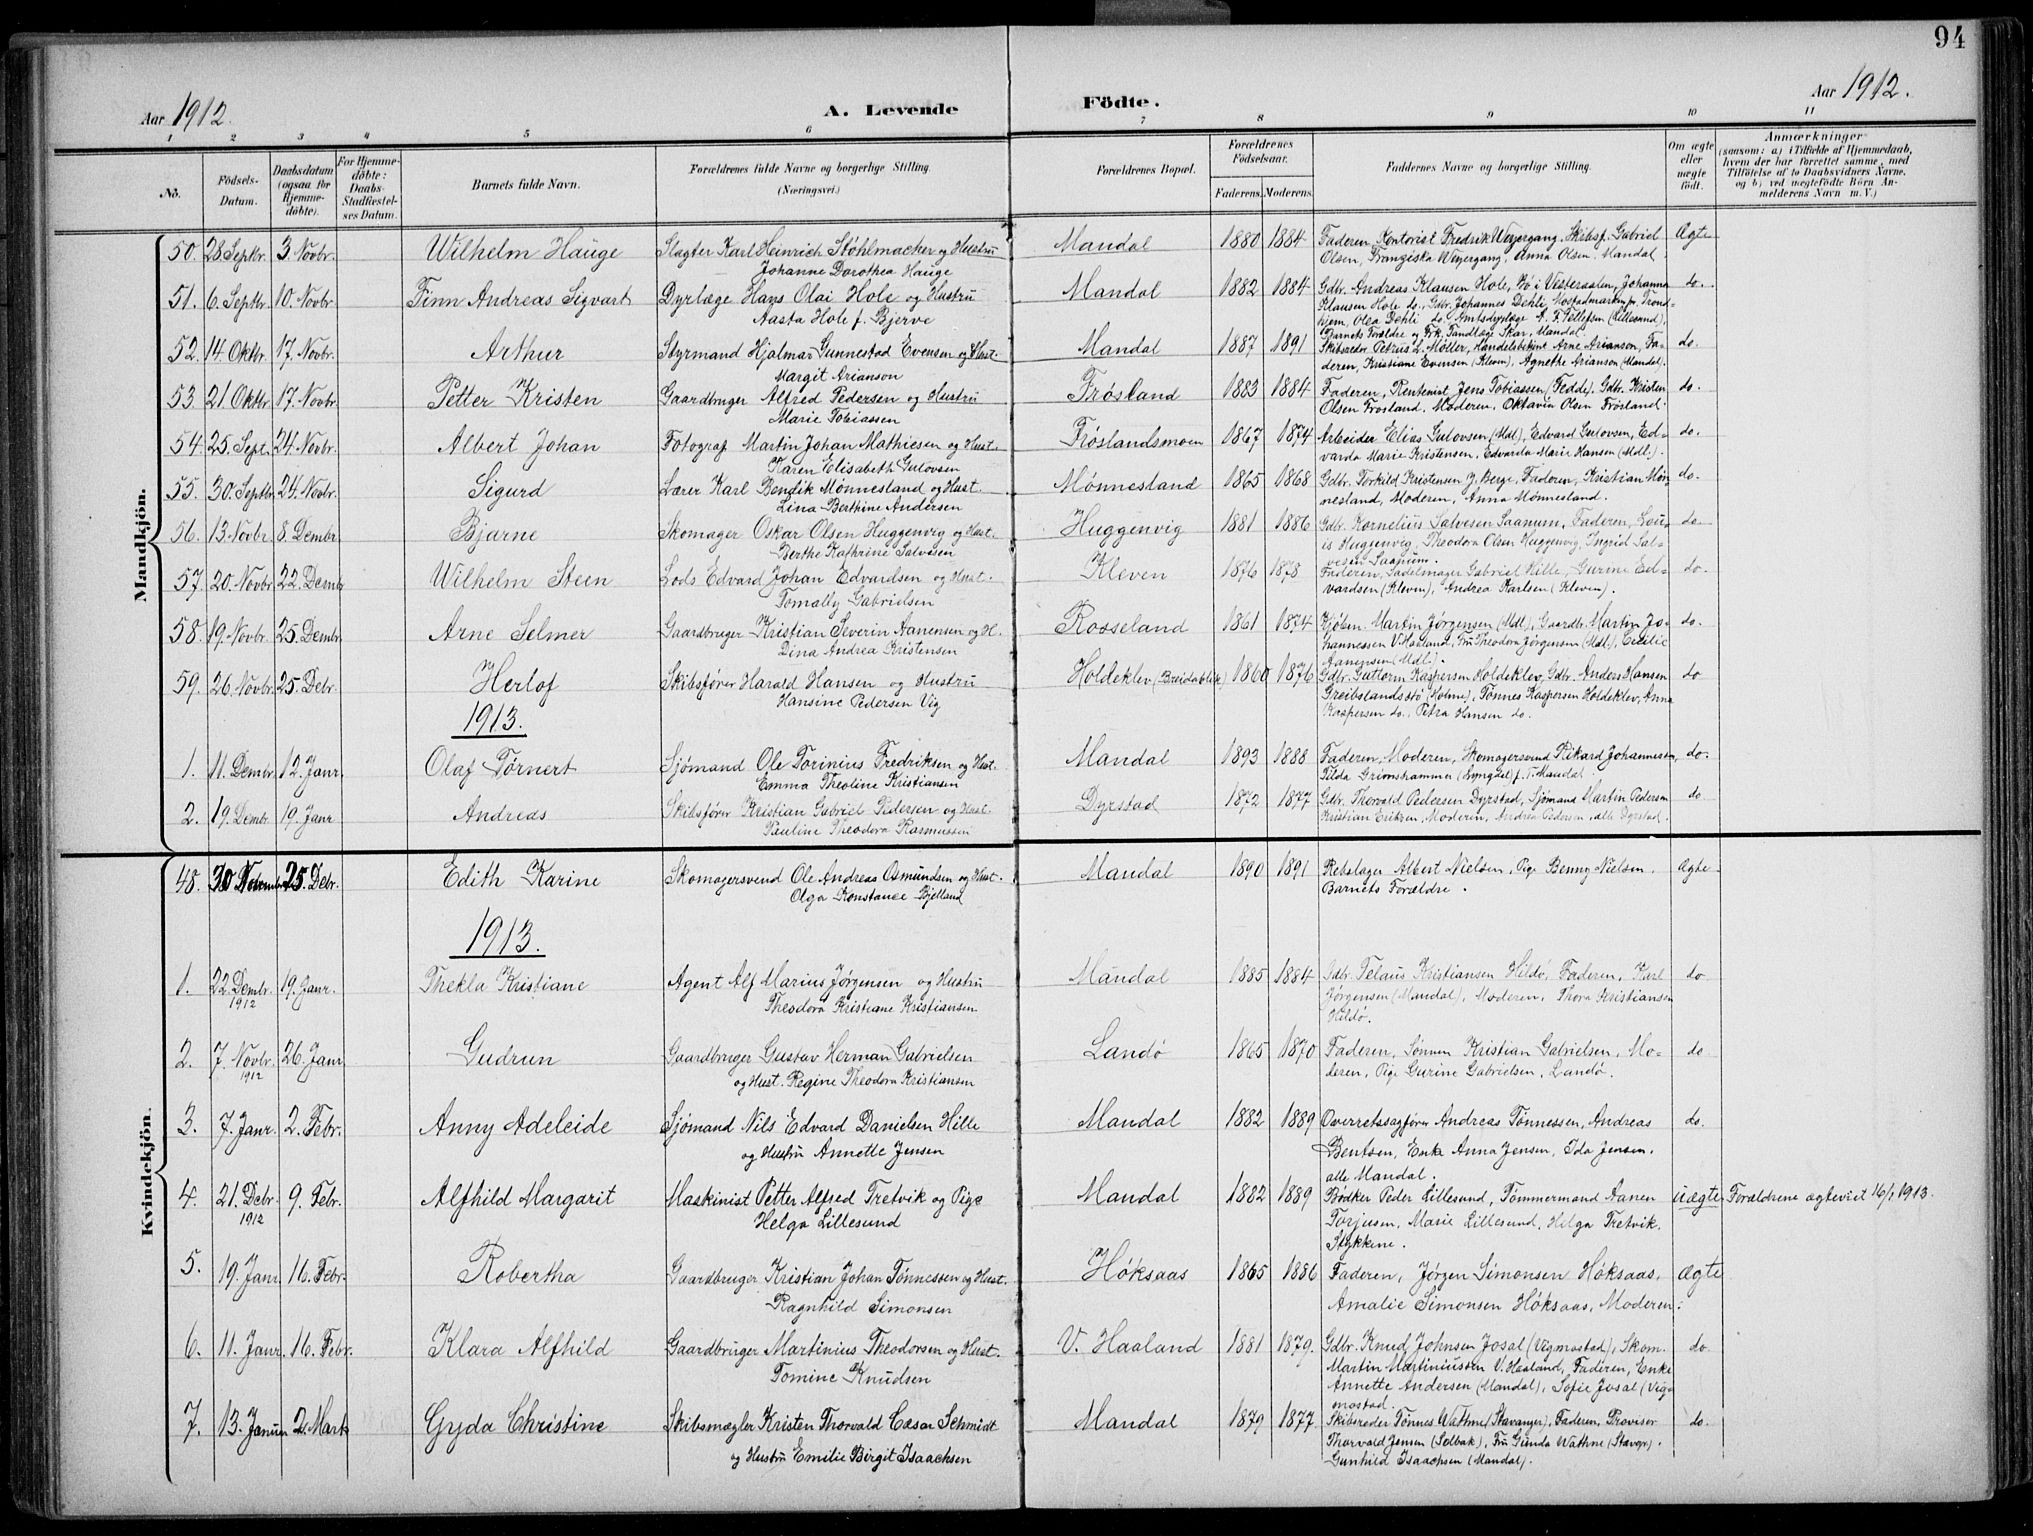 94
Aar 1912.
A. Levende
Födte.
Aar 1912.
1 2 3 4 5 6 7 8 9 10 11
No.
Födsels-Datum.
Daabsdatum (ogsaa for Hjemme-döbte).
For Hjemme-döbte: Daabs-Stadfæstel-ses Datum.
Barnets fulde Navn.
Forældrenes fulde Navne og borgerlige Stilling.
(Næringsvei.)
Forældrenes Bopæl.
Forældrenes Födselsaar.
Faderens. Moderens.
Faddernes Navne og borgerlige Stilling.
Om ægte eller uægte födt.
Anmærkninger
(saasom: a) i Tilfælde af Hjemmedaab, hvem der har forrettet samme, med Tilföielse af to Daabsvidners Navne, og b) ved uægtefödte Börn Anmelderens Navn m. V.)
Mandkjön.
50. 28 Septbr. 3. Novbr. Wilhelm Hauge Slagter Karl Heinrich Støhlmacher og Hustru Mandal 1880 1884 Faderen, Kontorist Fredrik Weyergang, Skibsf. Gabriel Ægte
Johanne Dorothea Hauge Olsen, Franziska Weyergang, Anna Olsen. Mandal.
51. 6. Septbr. 10. Novbr. Finn Andreas Sigvart Dyrlæge Hans Olai Hole og Hustru Mandal 1882 1884 Gdbr. Andreas Klausen Hole, Bø i Vesteraalen, Johanna do.
Aasta Hole f. Bjerve Klausen Hole do., Gdbr. Johannes Dehli, Mostadmarken pr. Trond-
hjem, Olea Dehli do. Amtsdyrlæge A. F. Tellefsen (Lillesand),
Barnets Forældre og Frk. Tandlæge Skar, Mandal.
52. 14. Oktbr. 17. Novbr. Arthur Styrmand Hjalmar Gunnestad Evensen og Hust. Mandal 1887 1891 Skibsreder Petrus L. Möller, Handelsbetjent Arne Arianson, Fa- do.
Margit Arianson deren, Kristiane Evensen (Kleven), Agnethe Arianson (Mandal).
53. 21 Oktbr. 17. Novbr. Petter Kristen Gaardbruger Alfred Pedersen og Hustru Frøsland 1883 1884 Faderen, Rentenist Jens Tobiassen (Fedde), Gdbr. Kristen do.
Marie Tobiassen Olsen Frøsland, Moderen, Oktavia Olsen Frøsland.
54. 25. Sept. 24. Novbr. Albert Johan Fotograf Martin Johan Mathiesen og Hust. Frøslandsmoen 1867 1874 Arbeider Elias Gulovsen (Mdl), Edvard Gulovsen, Ed- do.
Karen Elisabeth Gulovsen varda Marie Kristensen, Edvarda Marie Hansen (Mdl.).
55. 30. Septbr. 24. Novbr. Sigurd Lærer Karl Bendik Mønnesland og Hust. Mønnesland 1865 1868 Gdbr. Torkild Kristensen Y. Berge, Faderen, Kristian Møn- do.
Lina Berthine Andersen nesland, Moderen, Anna Mønnesland.
56. 13. Novbr. 8. Dembr. Bjarne Skomager Oskar Olsen Huggenvig og Hust. Huggenvig 1881 1886 Gdbr. Kornelius Salvesen Saanum, Faderen, Lou- do.
Berthe Kathrine Salvesen is Huggenvig, Theodora Olsen Huggenvig, Ingrid Sal-
vesen Saanum.
57. 20. Novbr. 22. Dembr. Wilhelm Steen Lods Edvard Johan Edvardsen og Hust. Kleven 1876 1878 Faderen, Sadelmager Gabriel Hille, Gurine Ed- do.
Tomally Gabrielsen vardsen (Kleven), Andrea Karlsen (Kleven).
58. 19. Novbr. 25. Dembr. Arne Selmer Gaardbruger Kristian Severin Aanensen og H. Rosseland 1861 1874 Kjøbm. Martin Jørgensen (Mdl), Gaardbr. Martin Jo- do.
Dina Andrea Kristensen hannessen V. Haaland, Fru Theodora Jørgensen (Mdl), Cecilie
Aanensen (Mdl).
59. 26. Novbr. 25. Debr. Herlof Skibsfører Harald Hansen og Hustru Holdeklev (Breidablik) 1860 1876 Gdbr. Guttorm Kaspersen Holdeklev, Gdbr. Anders Hansen do
Hansine Pedersen Vig Greibslandsstø (Holme), Tønnes Kaspersen Holdeklev, Anna
Kaspersen do., Petra Hansen do.
1913.
1. 11. Dembr. 12. Janr. Olaf Tørnert Sjømand Ole Torinius Fredriksen og Hust. Mandal 1893 1888 Faderen, Moderen, Skomagersvend Rikard Johannessen, do.
Emma Theoline Kristiansen Tilda Grimshammer (Lyngdal) f. T. Mandal.
2. 19. Dembr. 19. Janr Andreas Skibsfører Kristian Gabriel Pedersen og Hust. Dyrstad 1872 1877 Gdbr. Thorvald Pedersen Dyrstad, Sjømand Martin Pedersen do
Pauline Theodora Rasmussen Kristian Eriksen, Moderen, Andrea Pedersen, alle Dyrstad.
Kvindekjön.
48. 30 Novembr 25. Debr. Edith Karine Skomagersvend Ole Andreas Osmundsen og Hust. Mandal 1890 1891 Rebslager Albert Nielsen, Pige Benny Nielsen, Ægte
Olga Konstance Bjelland Barnets Forældre.
1913.
1. 22. Dembr. 1912 19. Janr. Thekla Kristiane Agent Alf Marius Jørgensen og Hustru Mandal 1885 1884 Gdbr. Telaus Kristiansen Hildø, Faderen, Karl do
Theodora Kristiane Kristiansen Jørgensen (Mandal), Moderen, Thora Kristiansen
Hildø.
2. 7. Novbr. 1912 26. Janr Gudrun Gaardbruger Gustav Herman Gabrielsen Landø 1865 1870 Faderen, Sønnen Kristian Gabrielsen, Mo- do.
og Hust. Regine Theodora Kristiansen deren, Pige Gurine Gabrielsen, Landø.
3. 7. Janr. 2. Febr. Anny Adeleide Sjømand Nils Edvard Danielsen Hille Mandal 1882 1889 Overretssagfører Andreas Tønnessen, Andreas do.
og Hustru Annette Jensen Bentsen, Enke Anna Jensen, Ida Jensen,
alle Mandal.
4. 21. Debr. 1912 9. Febr. Alfhild Margarit Maskinist Petter Alfred Tretvik og Pige Mandal 1882 1889 Bødker Peder Lillesund, Tømmermand Aanen uægte Forældrene ægteviet 16/1 1913.
Helga Lillesund Torjusen, Marie Lillesund, Helga Tretvik,
Stykkene.
5. 19. Janr 16. Febr. Robertha Gaardbruger Kristian Johan Tønnessen og Hust. Høksaas 1865 1886 Faderen, Jørgen Simonsen Høksaas, Ægte
Ragnhild Simonsen Amalie Simonsen Høksaas, Moderen.
6. 11. Janr. 16. Febr. Klara Alfhild Gaardbruger Martinius Theodorsen og Hust. V. Haaland 1881 1879. Gdbr. Knud Johnsen Josal (Vigmostad), Skom. do.
Tomine Knudsen Martin Martiniussen V. Haaland, Faderen, Enke
Annette Andersen (Mandal), Sofie Josal (Vig-
mostad.
7. 13. Januer 2. Marts Gyda Christine Skibsmægler Kristen Thorvald Cæsar Schmidt Mandal 1879 1877 Skibsreder Tønnes Wathne (Stavanger), Faderen, Provisor do.
og Hustru Emilie Birgit Isaachsen Thorvald Jensen (Selbak), Fru Gunda Wathne (Stavgr).
Gunhild Isaachsen (Mandal).